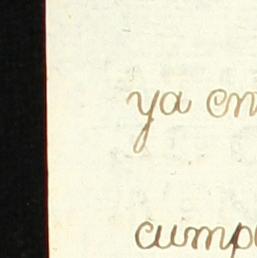 ya en
cump